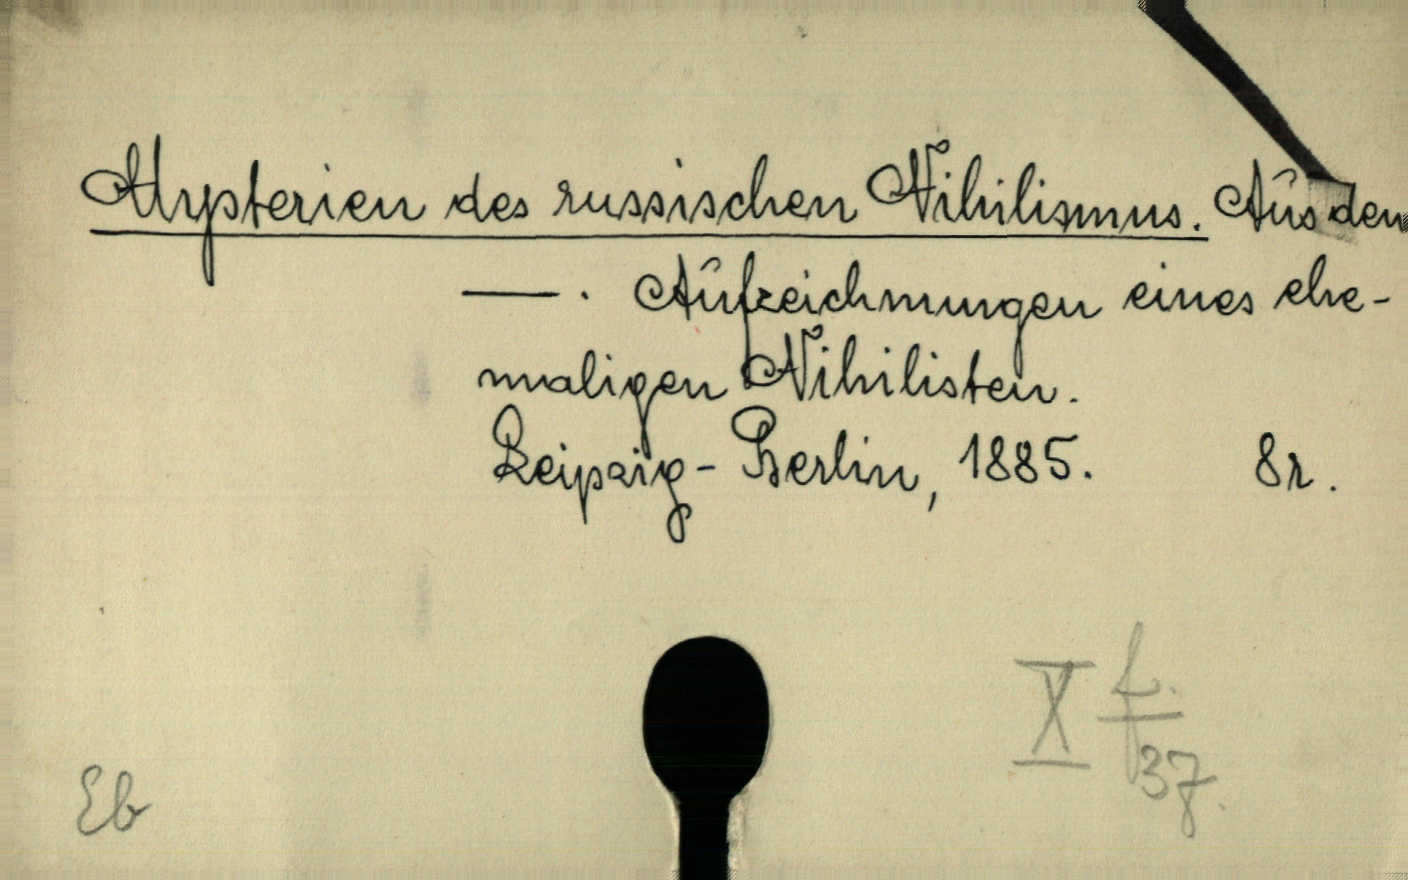 Mysterien des russischen Nihilismus. Aus den
—. Aufzeichnungen eines ehe-
maligen Nihilisten.
Leipzig - Berlin, 1885. 8r.
X f.
37.
Eb